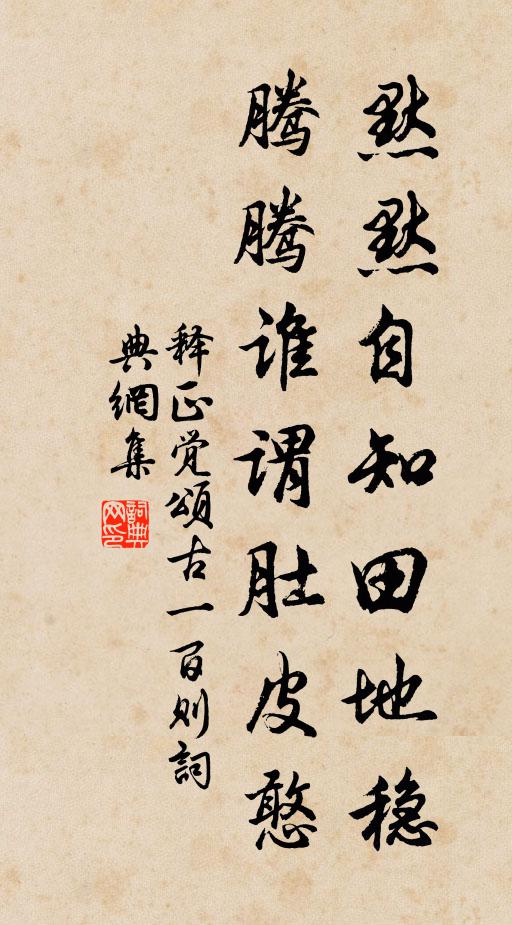 默默自知田地稳
腾腾谁谓肚皮憨
释正觉颂古一百则词
典网集
词典网印